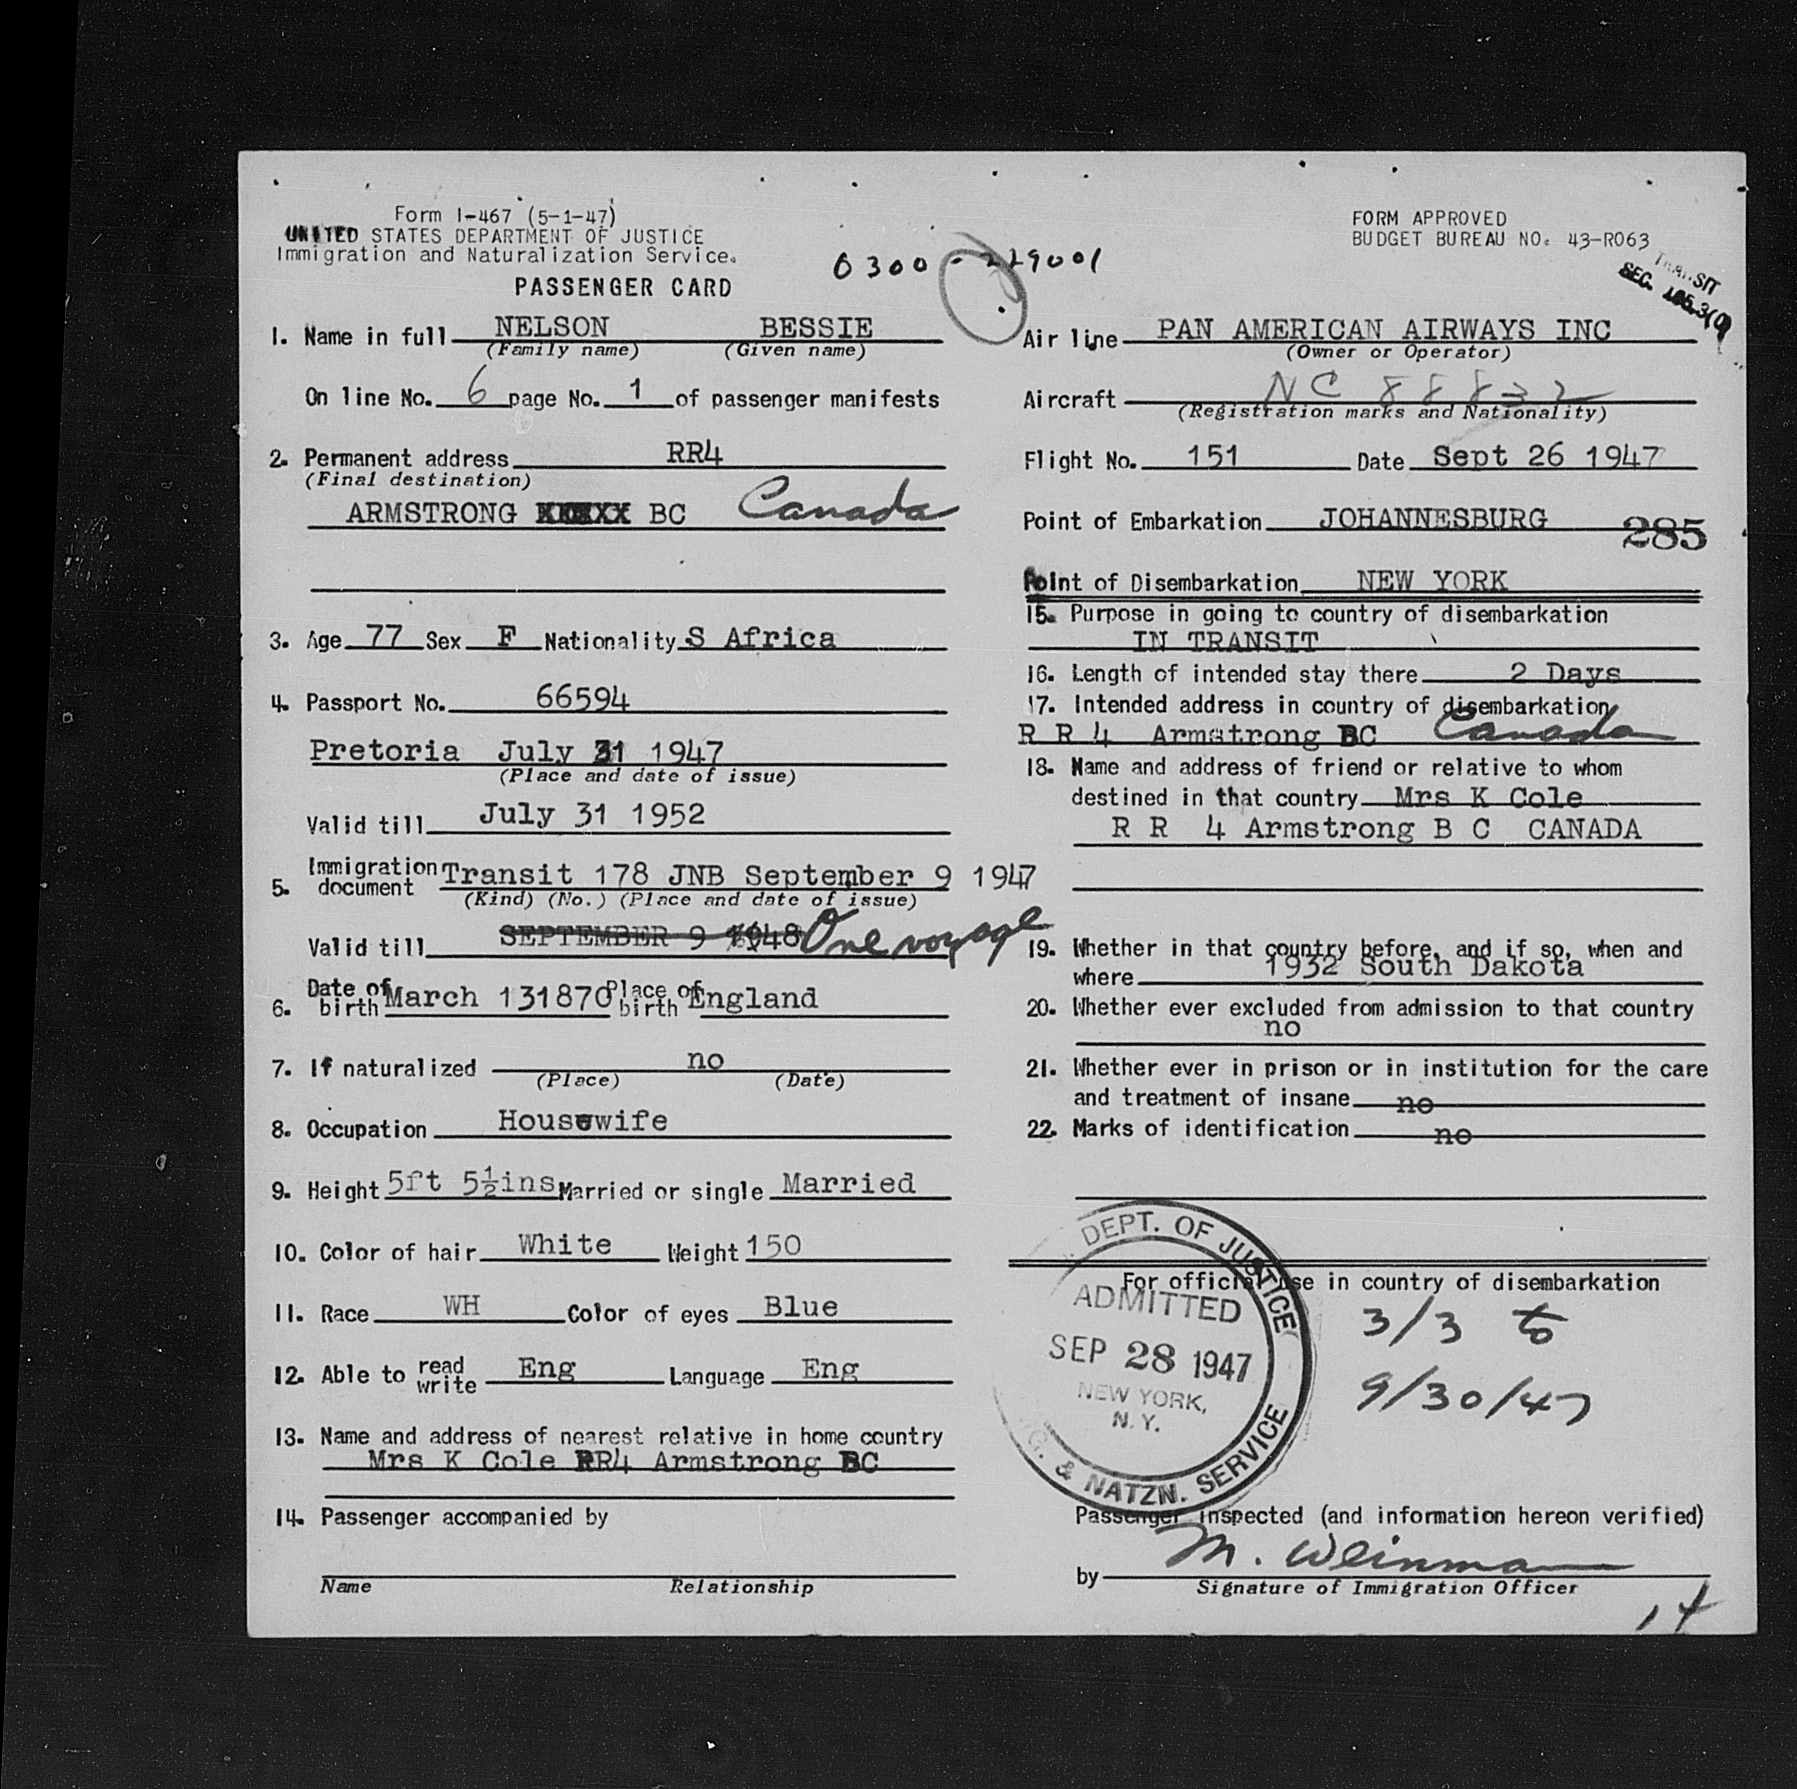 Form I-467 (5-1-47)
UNITED STATES DEPARTMENT OF JUSTICE
Immigration and Naturalization Service.
PASSENGER CARD
0300-229001
FORM APPROVED
BUDGET BUREAU NO. 43-R063
TRANSIT
SEC.
1. Name in full NELSON BESSIE
(Family name) (Given name)
On line No. 6 page No. 1 of passenger manifests
2. Permanent address RR4
(Final destination)
ARMSTRONG BC Canada
3. Age 77 Sex F Nationality S Africa
4. Passport No. 66594
Pretoria July 31 1947
(Place and date of issue)
Valid till July 31 1952
5. Immigration document Transit 178 JNB September 9 1947
(Kind) (No.) (Place and date of issue)
Valid till SEPTEMBER 9 1948 One voyage
6. Date of birth March 131870 Place of birth England
7. If naturalized no
(Place) (Date)
8. Occupation Housewife
9. Height 5ft 5½ins Married or single Married
10. Color of hair White Weight 150
11. Race WH Color of eyes Blue
12. Able to read write Eng Language Eng
13. Name and address of nearest relative in home country
Mrs K Cole RR4 Armstrong BC
14. Passenger accompanied by
Name Relationship
Air line PAN AMERICAN AIRWAYS INC
(Owner or Operator)
Aircraft NC 88832
(Registration marks and Nationality)
Flight No. 151 Date Sept 26 1947
Point of Embarkation JOHANNESBURG
285
Point of Disembarkation NEW YORK
15. Purpose in going to country of disembarkation
IN TRANSIT
16. Length of intended stay there 2 Days
17. Intended address in country of disembarkation
R R 4 Armstrong BC Canada
18. Name and address of friend or relative to whom
destined in that country Mrs K Cole
R R 4 Armstrong B C CANADA
19. Whether in that country before, and if so, when and
where 1932 South Dakota
20. Whether ever excluded from admission to that country
no
21. Whether ever in prison or in institution for the care
and treatment of insane no
22. Marks of identification no
For official use in country of disembarkation
DEPT. OF JUSTICE
ADMITTED
SEP 28 1947
NEW YORK,
N.Y.
& NATZN. SERVICE
3/3 to
9/30/47
Passenger inspected (and information hereon verified)
by M. Weinman
Signature of Immigration Officer
14